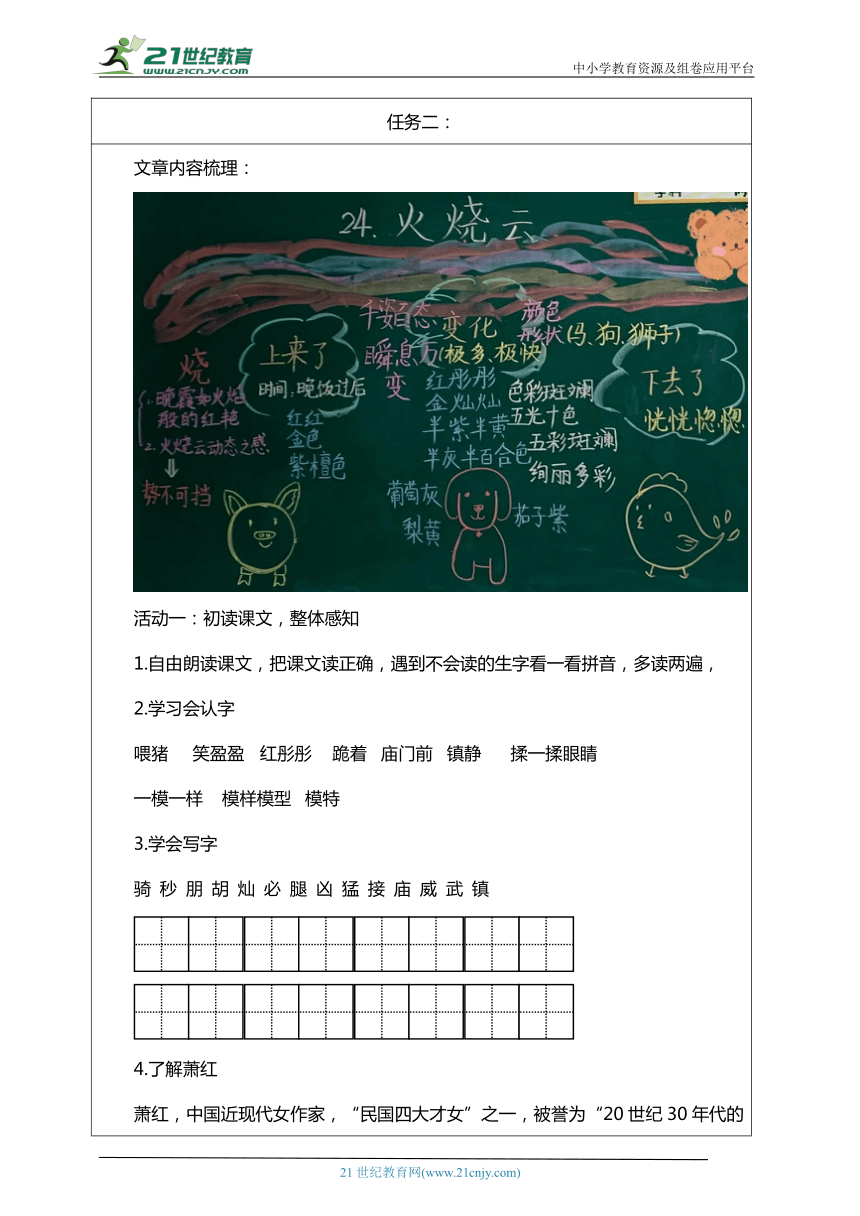 21世纪教育
WWW.21CNJY.COM
中小学教育资源及组卷应用平台
任务二：
文章内容梳理：
24.火烧云
烧
1.晚霞如火焰
般的红艳
2.火烧云动态之感
势不可挡
上来了
时间:晚饭过后
红红
金色
紫檀色
千姿百态
瞬息万变
变化
(极多、极快)
颜色
形状(马、狗、狮子)
红彤彤
金灿灿
半紫半黄
半灰半百合色
葡萄灰
梨黄
茄子紫
色彩斑斓
五光十色
五彩斑斓
绚丽多彩
下去了
恍恍惚惚
活动一：初读课文，整体感知
1.自由朗读课文，把课文读正确，遇到不会读的生字看一看拼音，多读两遍，
2.学习会认字
喂猪 笑盈盈 红彤彤 跪着 庙门前 镇静 揉一揉眼睛
一模一样 模样模型 模特
3.学会写字
骑 秒 朋 胡 灿 必 腿 凶 猛 接 庙 威 武 镇
4.了解萧红
萧红，中国近现代女作家，“民国四大才女”之一，被誉为“20世纪30年代的
21世纪教育网(www.21cnjy.com)